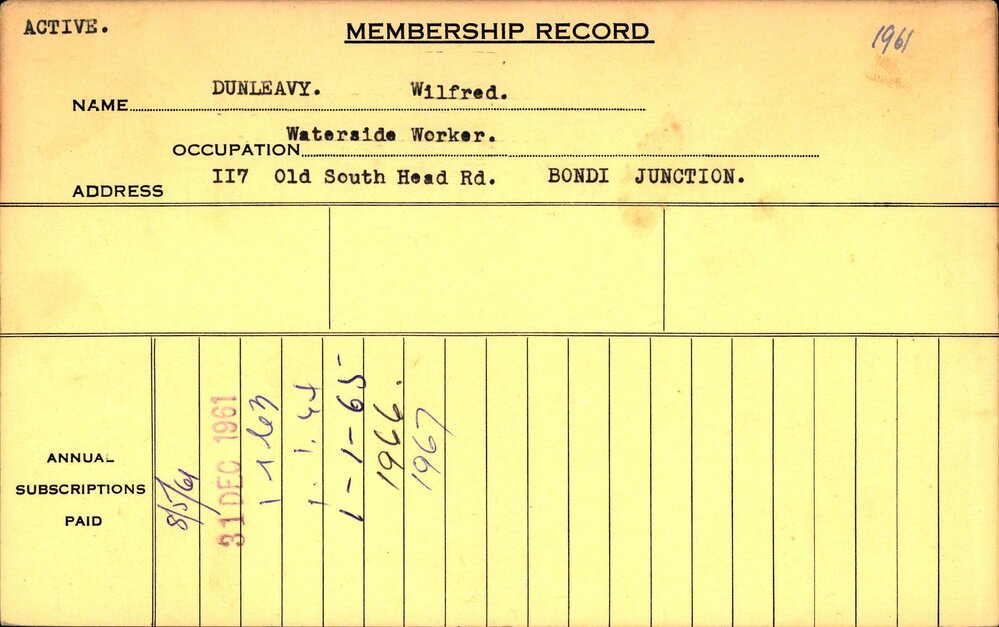 ACTIVE.
MEMBERSHIP RECORD
1961
NAME DUNLEAVY. Wilfred.
OCCUPATION Waterside Worker.
ADDRESS II7 Old South Head Rd. BONDI JUNCTION.
ANNUAL
SUBSCRIPTIONS
PAID
8/5/61
31 DEC 1961
1 1 63
1. 1. 64
1-1-65
1966.
1967